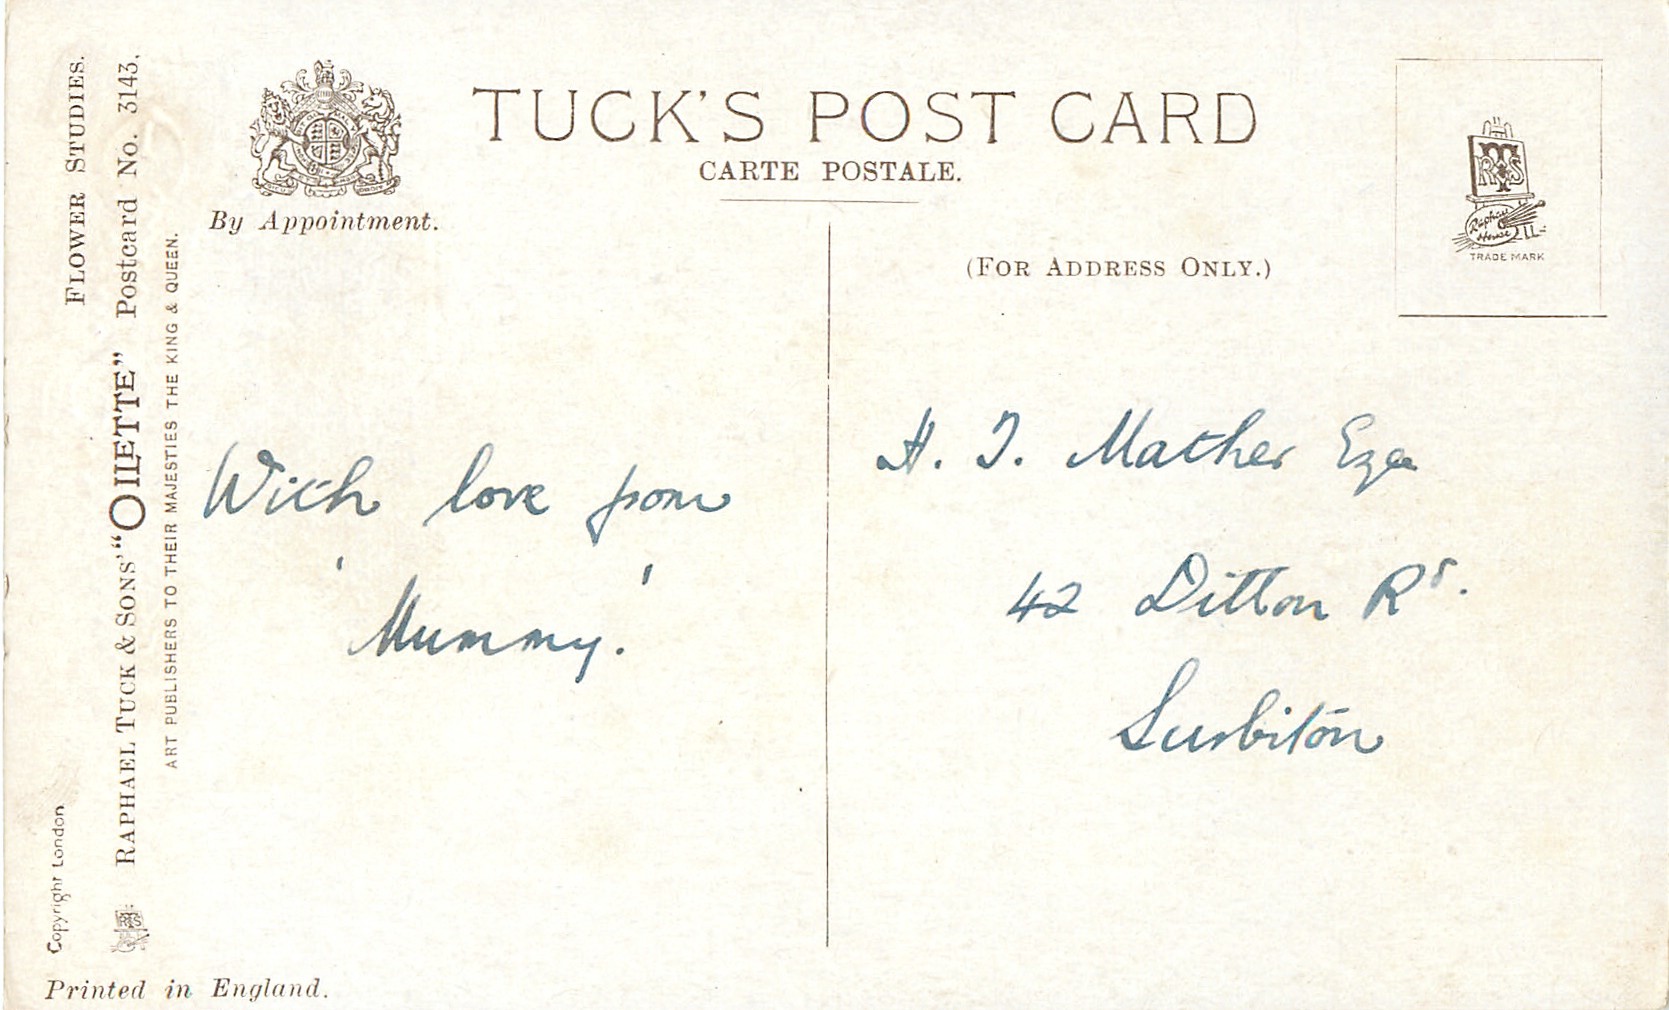 TUCK'S POST CARD
CARTE POSTALE.
By Appointment.
(FOR ADDRESS ONLY.)
RTS
Raphael
House
TRADE MARK
FLOWER STUDIES.
RAPHAEL TUCK & SONS' "OILETTE" Postcard No. 3143.
ART PUBLISHERS TO THEIR MAJESTIES THE KING & QUEEN.
Copyright London
RTS
Printed in England.
With love from
'Mummy.'
H. J. Mather Esq
42 Ditton Rd.
Surbiton